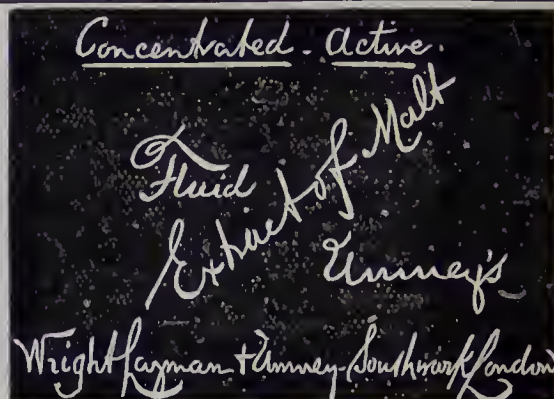 Concentrated. Active.
Fluid
Extract of Malt
Umney's
Wright Layman + Umney. Southwark London